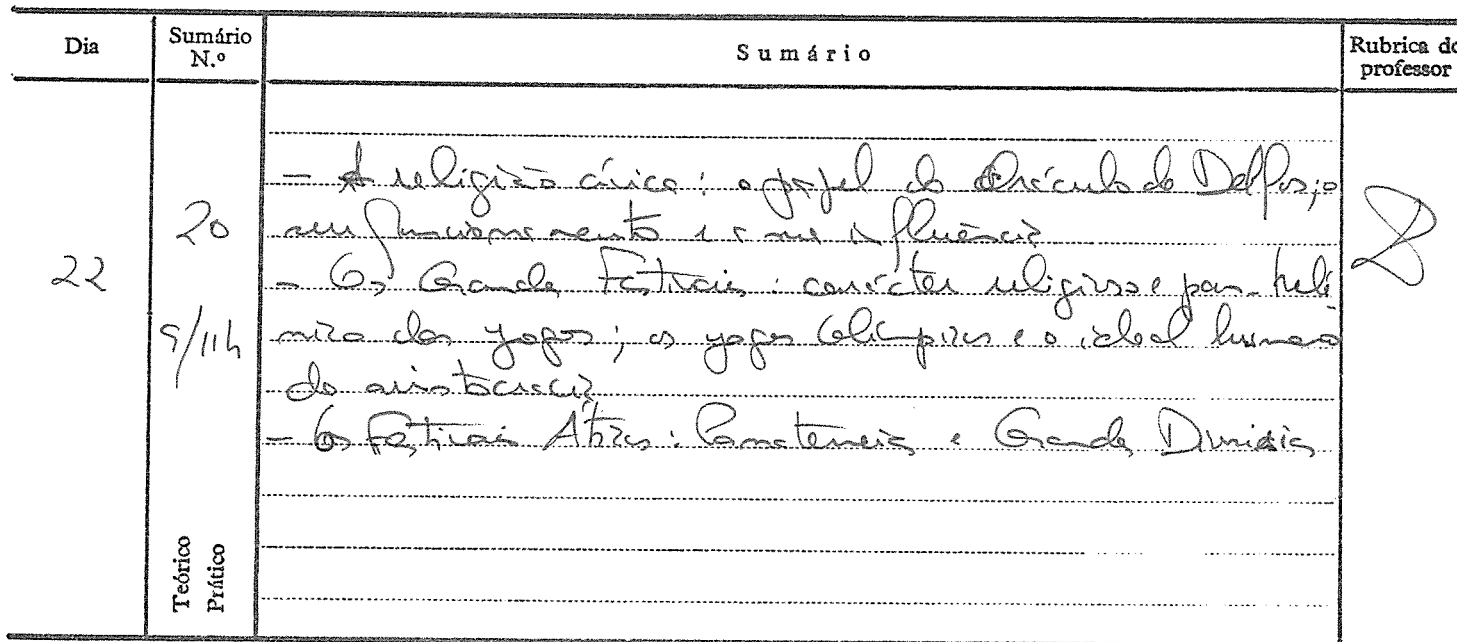 Dia
Sumário N.º
Sumário
Rubrica do professor
22
20
9/11h
- A religião cívica: o papel do Oráculo de Delfos; o
seu funcionamento e a sua influência
- Os Grandes Festivais: carácter religioso e pan-helé
nico dos jogos; os jogos Olímpicos e o ideal humano
da aristocracia
- Os Festivais Áticos: Panateneias e Grandes Dionísias
Teórico
Prático